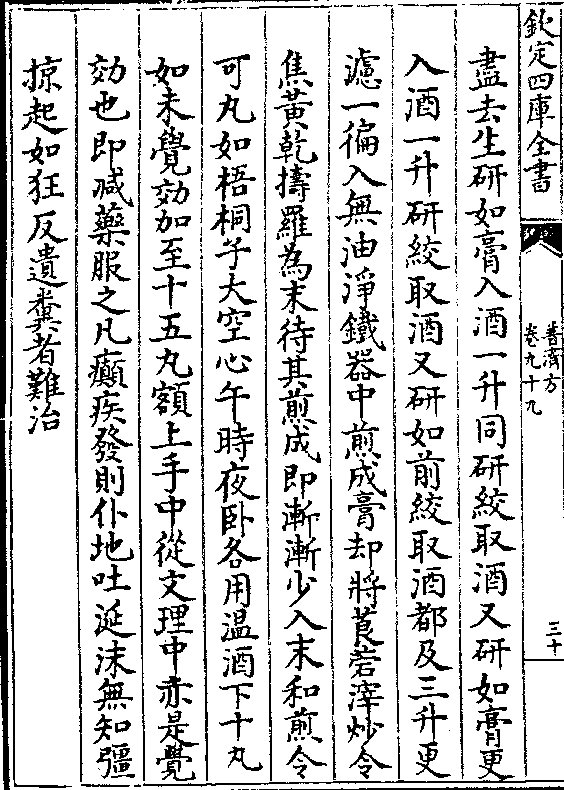 欽定四庫全書
普濟方
卷九十九
三十
盡去生研如膏入酒一升同研絞取酒又研如膏更
入酒一升研絞取酒又研如前絞取酒都及三升更
濾一徧入無油淨鐵器中煎成膏却將莨菪滓炒令
焦黃乾擣羅為末待其煎成即漸漸少入末和煎令
可丸如梧桐子大空心午時夜卧各用温酒下十丸
如未覺効加至十五丸額上手中從文理中亦是覺
効也即减藥服之凡癲疾發則仆地吐涎沫無知彊
掠起如狂反遺糞者難治